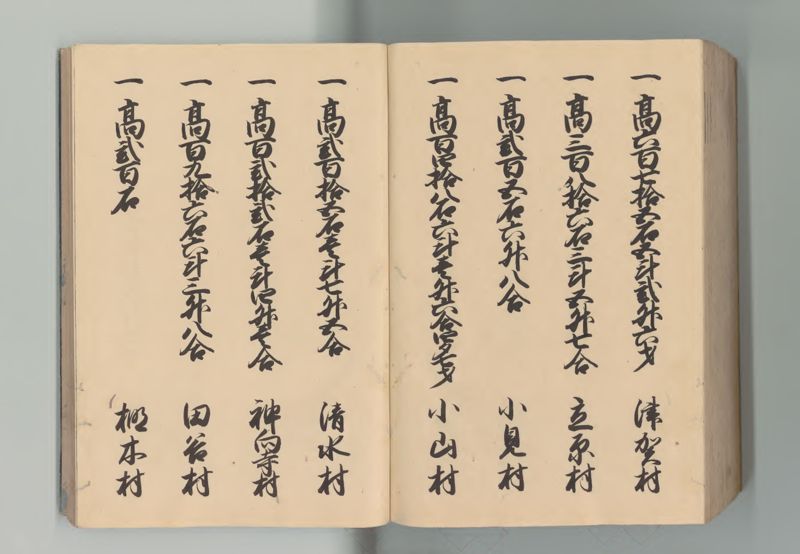 一 高六百七拾五石五斗弐升六才 津賀村
一 高三百八拾六石三斗五升七合 立原村
一 高弐百五石六升八合 小見村
一 高百四拾八石六斗壱升六合四勺七才 小山村
一 高弐百拾五石壱斗七升五合 清水村
一 高百弐拾弐石壱斗四升壱合 神向寺村
一 高百九拾六石六斗三升八合 田谷村
一 高弐百石 棚木村